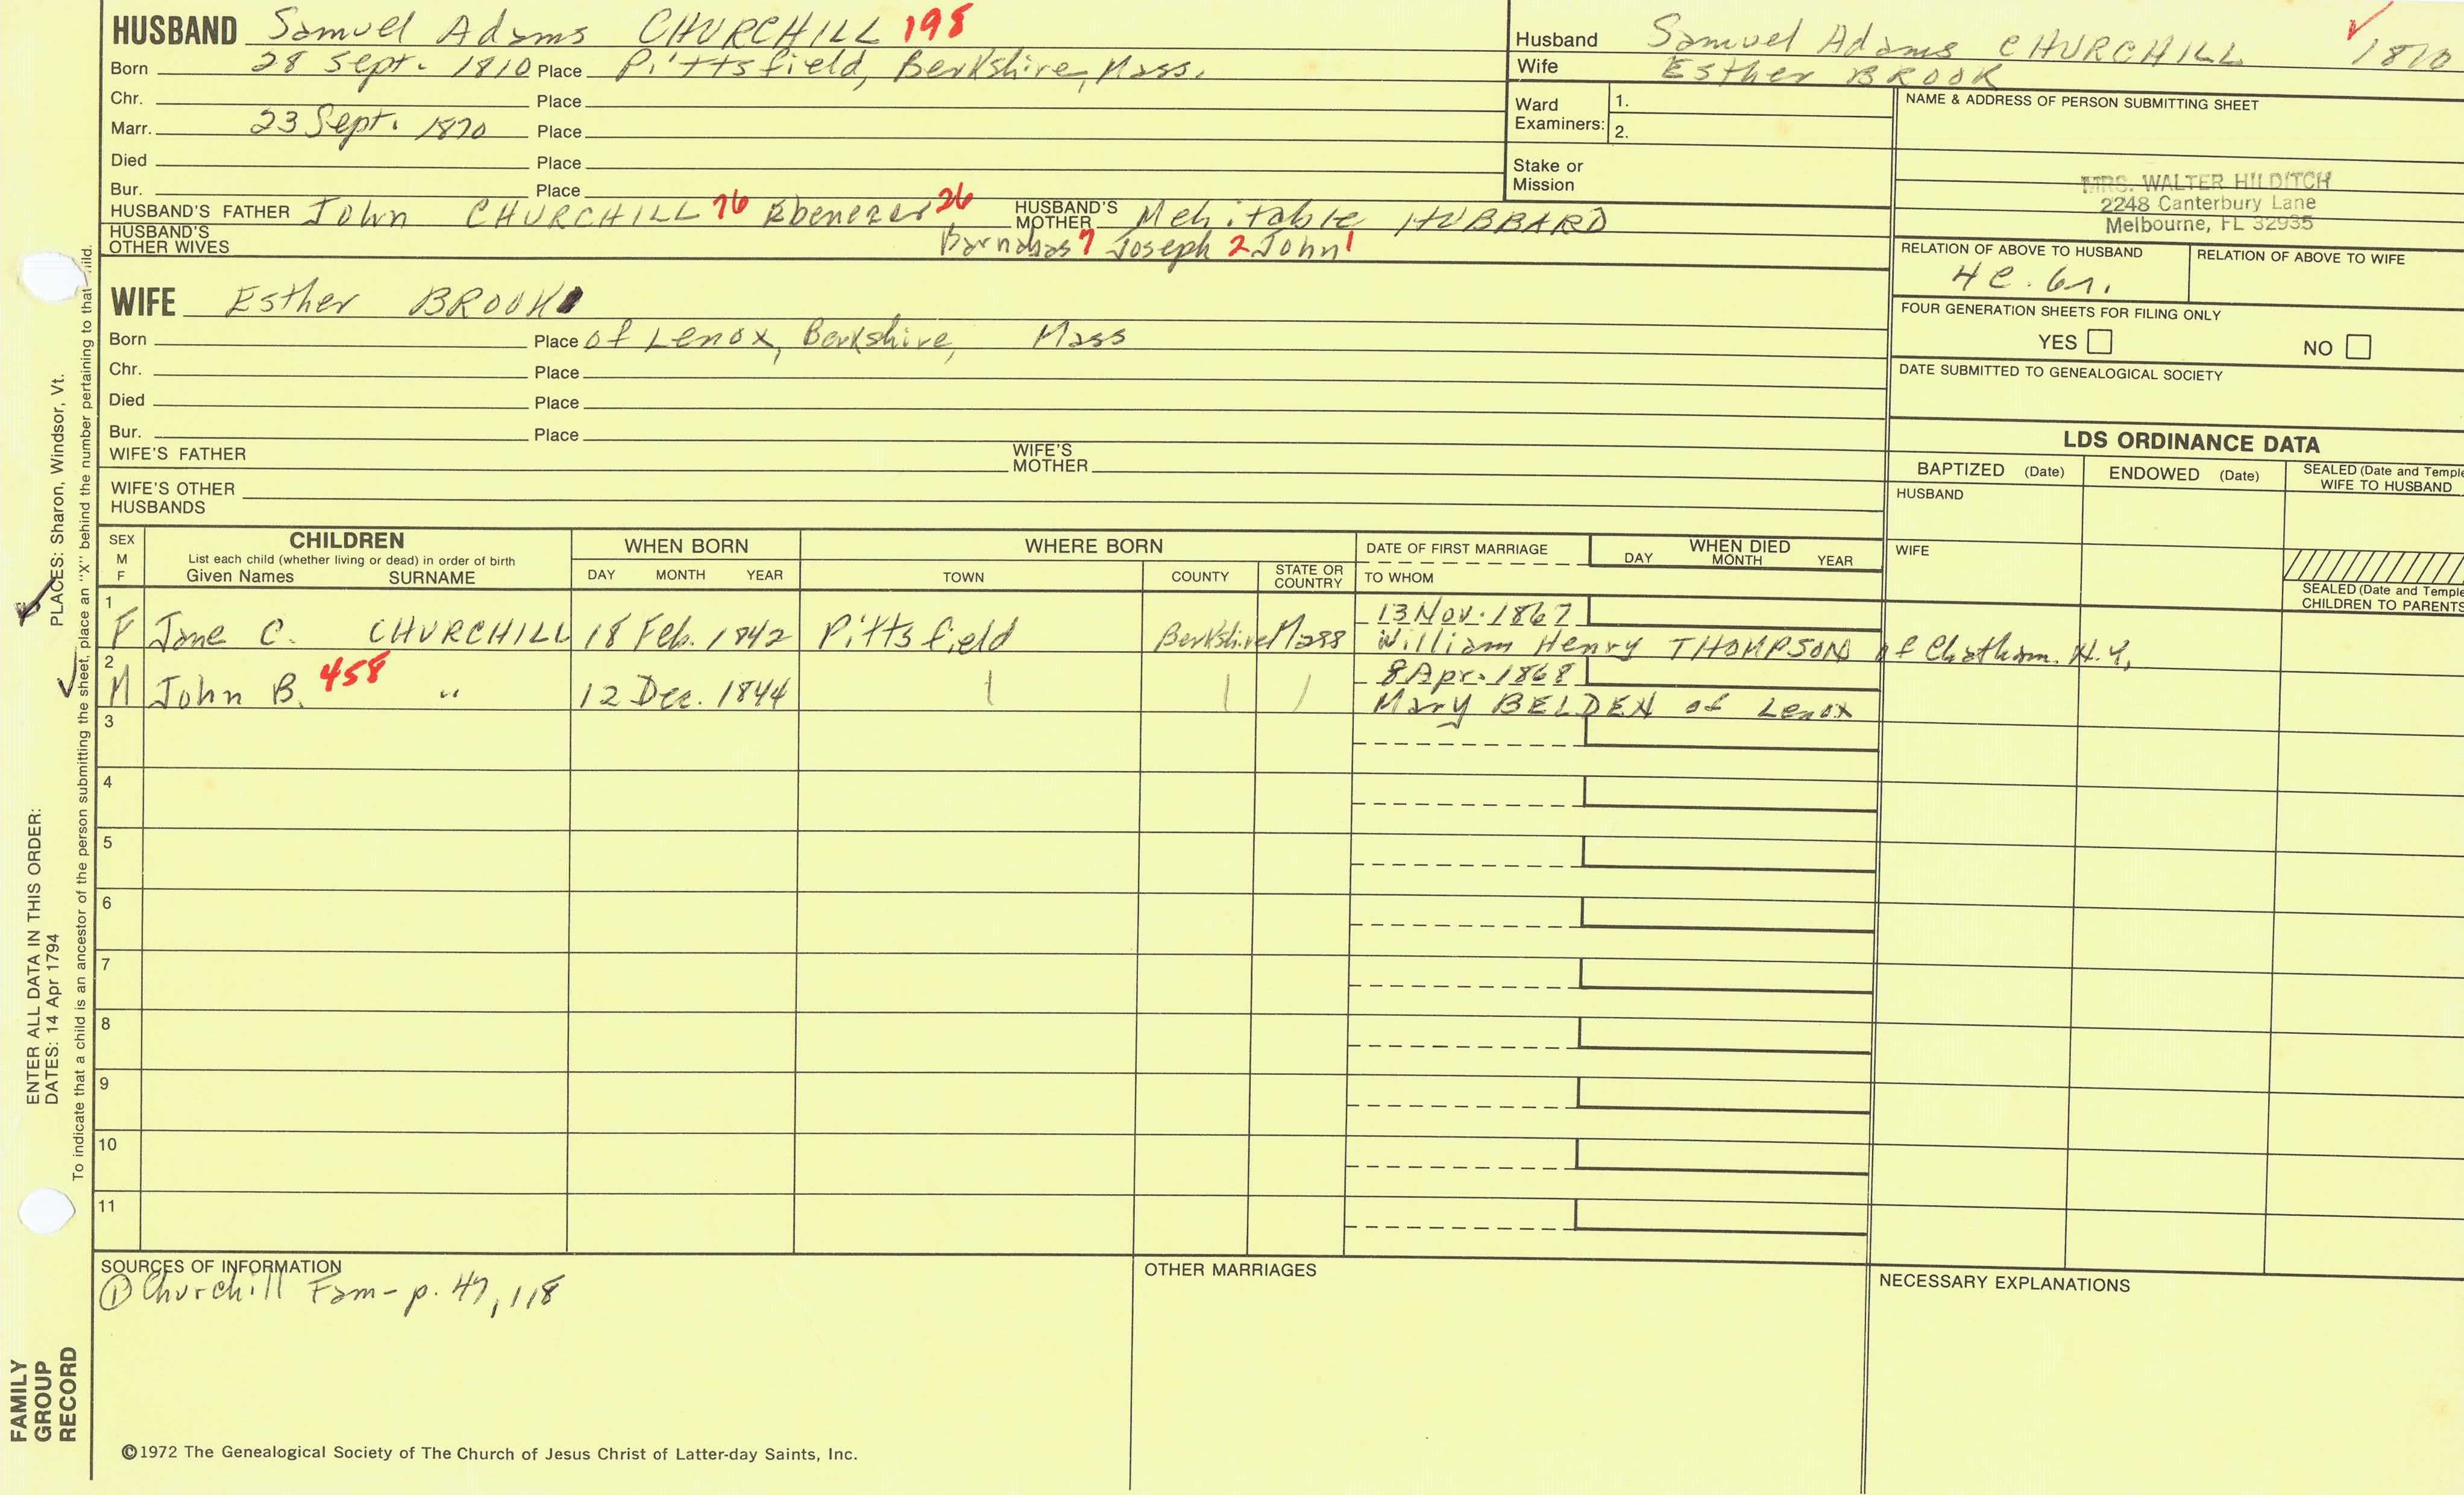 HUSBAND Samuel Adams CHURCHILL 198
Born 28 Sept. 1810 Place Pittsfield, Berkshire, Mass.
Chr. Place
Marr. 23 Sept. 1870 Place
Died Place
Bur. Place
HUSBAND'S FATHER John CHURCHILL 76 Ebenezer 26 HUSBAND'S MOTHER Mehitable HUBBARD
HUSBAND'S OTHER WIVES Barnabas 7 Joseph 2 John 1
Husband Samuel Adams CHURCHILL 1810
Wife Esther BROOK
Ward Examiners: 1.
2.
Stake or Mission
NAME & ADDRESS OF PERSON SUBMITTING SHEET
MRS. WALTER HILDITCH
2248 Canterbury Lane
Melbourne, FL 32935
RELATION OF ABOVE TO HUSBAND RELATION OF ABOVE TO WIFE
4 c. 6r.
FOUR GENERATION SHEETS FOR FILING ONLY
YES NO
DATE SUBMITTED TO GENEALOGICAL SOCIETY
WIFE Esther BROOK
Born Place of Lenox, Berkshire, Mass
Chr. Place
Died Place
Bur. Place
WIFE'S FATHER WIFE'S MOTHER
WIFE'S OTHER HUSBANDS
LDS ORDINANCE DATA
BAPTIZED (Date) ENDOWED (Date) SEALED (Date and Temple
WIFE TO HUSBAND
HUSBAND
WIFE
SEALED (Date and Temple
CHILDREN TO PARENTS
SEX M F CHILDREN WHEN BORN WHERE BORN DATE OF FIRST MARRIAGE WHEN DIED
List each child (whether living or dead) in order of birth
Given Names SURNAME DAY MONTH YEAR TOWN COUNTY STATE OR COUNTRY TO WHOM DAY MONTH YEAR
1 13 Nov. 1867
F Jane C. CHURCHILL 18 Feb. 1842 Pittsfield Berkshire Mass William Henry THOMPSON of Chatham. N.Y.
2 8 Apr. 1868
M John B. 458 " 12 Dec. 1844 Mary BELDEN of Lenox
3
4
5
6
7
8
9
10
11
SOURCES OF INFORMATION
① Churchill Fam - p. 47, 118
OTHER MARRIAGES
NECESSARY EXPLANATIONS
©1972 The Genealogical Society of The Church of Jesus Christ of Latter-day Saints, Inc.
FAMILY
GROUP
RECORD
ENTER ALL DATA IN THIS ORDER:
DATES: 14 Apr 1794 PLACES: Sharon, Windsor, Vt.
To indicate that a child is an ancestor of the person submitting the sheet, place an "X" behind the number pertaining to that child.